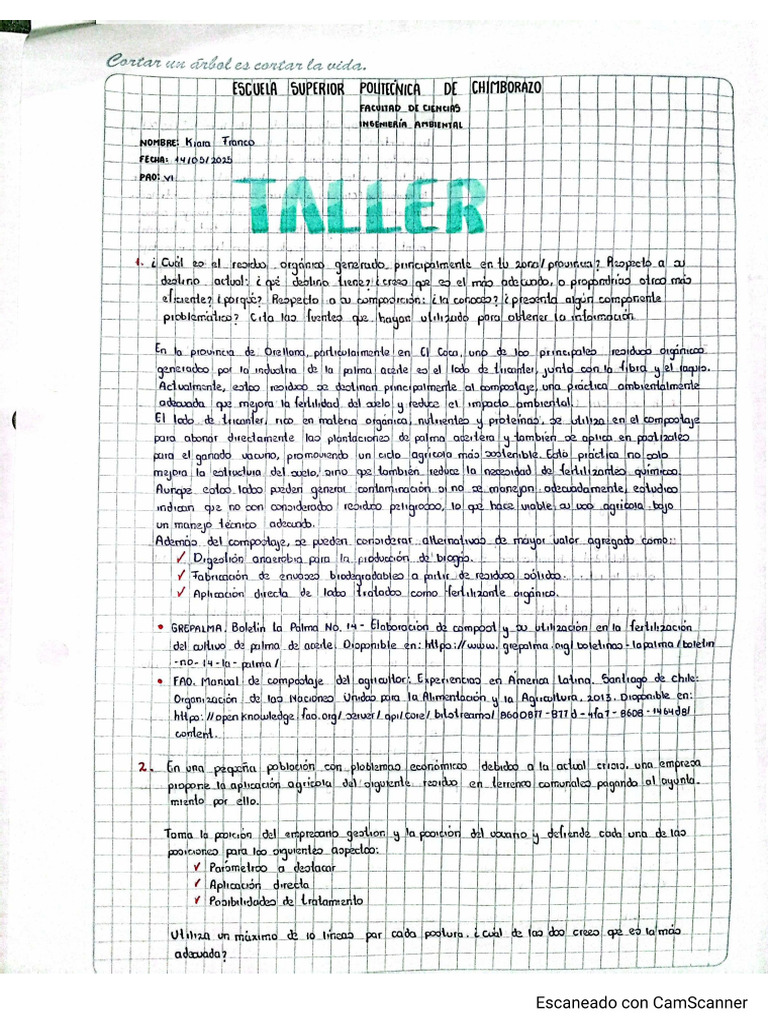 Cortar un árbol es cortar la vida.
ESCUELA SUPERIOR POLITECNICA DE CHIMBORAZO
FACULTAD DE CIENCIAS
INGENIERÍA AMBIENTAL
NOMBRE: Kiara Franco
FECHA: 14/05/2025
PAO: VI
TALLER
1. ¿Cuál es el residuo orgánico generado principalmente en tu zona/provincia? Respecto a su
destino actual: ¿qué destino tiene? ¿crees que es el más adecuado, o propondrías otros más
eficiente? ¿porqué? Respecto a su composición: ¿la conoces? ¿presenta algún componente
problemático? Cita las fuentes que hayas utilizado para obtener la información
En la provincia de Orellana, particularmente en El Coca, uno de los principales residuos orgánicos
generados por la industria de la palma aceite es el lodo de tricanter, junto con la fibra y el raquis.
Actualmente, estos residuos se destinan principalmente al compostaje, una práctica ambientalmente
adecuada que mejora la fertilidad del suelo y reduce el impacto ambiental.
El lodo de tricanter, rico en materia orgánica, nutrientes y proteínas, se utiliza en el compostaje
para abonar directamente las plantaciones de palma aceitera y también se aplica en pastizales
para el ganado vacuno, promoviendo un ciclo agrícola más sostenible. Esta práctica no solo
mejora la estructura del suelo, sino que también reduce la necesidad de fertilizantes químicos.
Aunque estos lodos pueden generar contaminación si no se manejan adecuadamente, estudios
indican que no son considerados residuos peligrosos, lo que hace viable su uso agrícola bajo
un manejo técnico adecuado.
Además del compostaje, se pueden considerar alternativas de mayor valor agregado como:
✓ Digestión anaerobia para la producción de biogás.
✓ Fabricación de envases biodegradables a partir de residuos sólidos.
✓ Aplicación directa de lodos tratados como fertilizante orgánico.
• GREPALMA. Boletín La Palma No. 14 - Elaboración de compost y su utilización en la fertilización
del cultivo de palma de aceite. Disponible en: https://www.grepalma.org/boletines-lapalma/boletin
-no-14-la-palma/
• FAO. Manual de compostaje del agricultor: Experiencias en América Latina. Santiago de Chile:
Organización de las Naciones Unidas para la Alimentación y la Agricultura, 2013. Disponible en:
https://openknowledge.fao.org/server/api/core/bitstreams/8600877-877d-4fa7-8608-1464d8/
content.
2. En una pequeña población con ploblemas económicos debidos a la actual crisis, una empresa
propone la aplicación agrícola del siguiente residuo en terrenos comunales pagando al ayunta-
miento por ello.
Toma la posición del empresario gestion y la posición del usuario y defiende cada una de las
posiciones para los siguientes aspectos:
✓ Parámetros a destacar
✓ Aplicación directa
✓ Posibilidades de tratamiento
Utiliza un máximo de 10 líneas par cada postura. ¿cuál de las dos crees que es la más
adecuada?
Escaneado con CamScanner